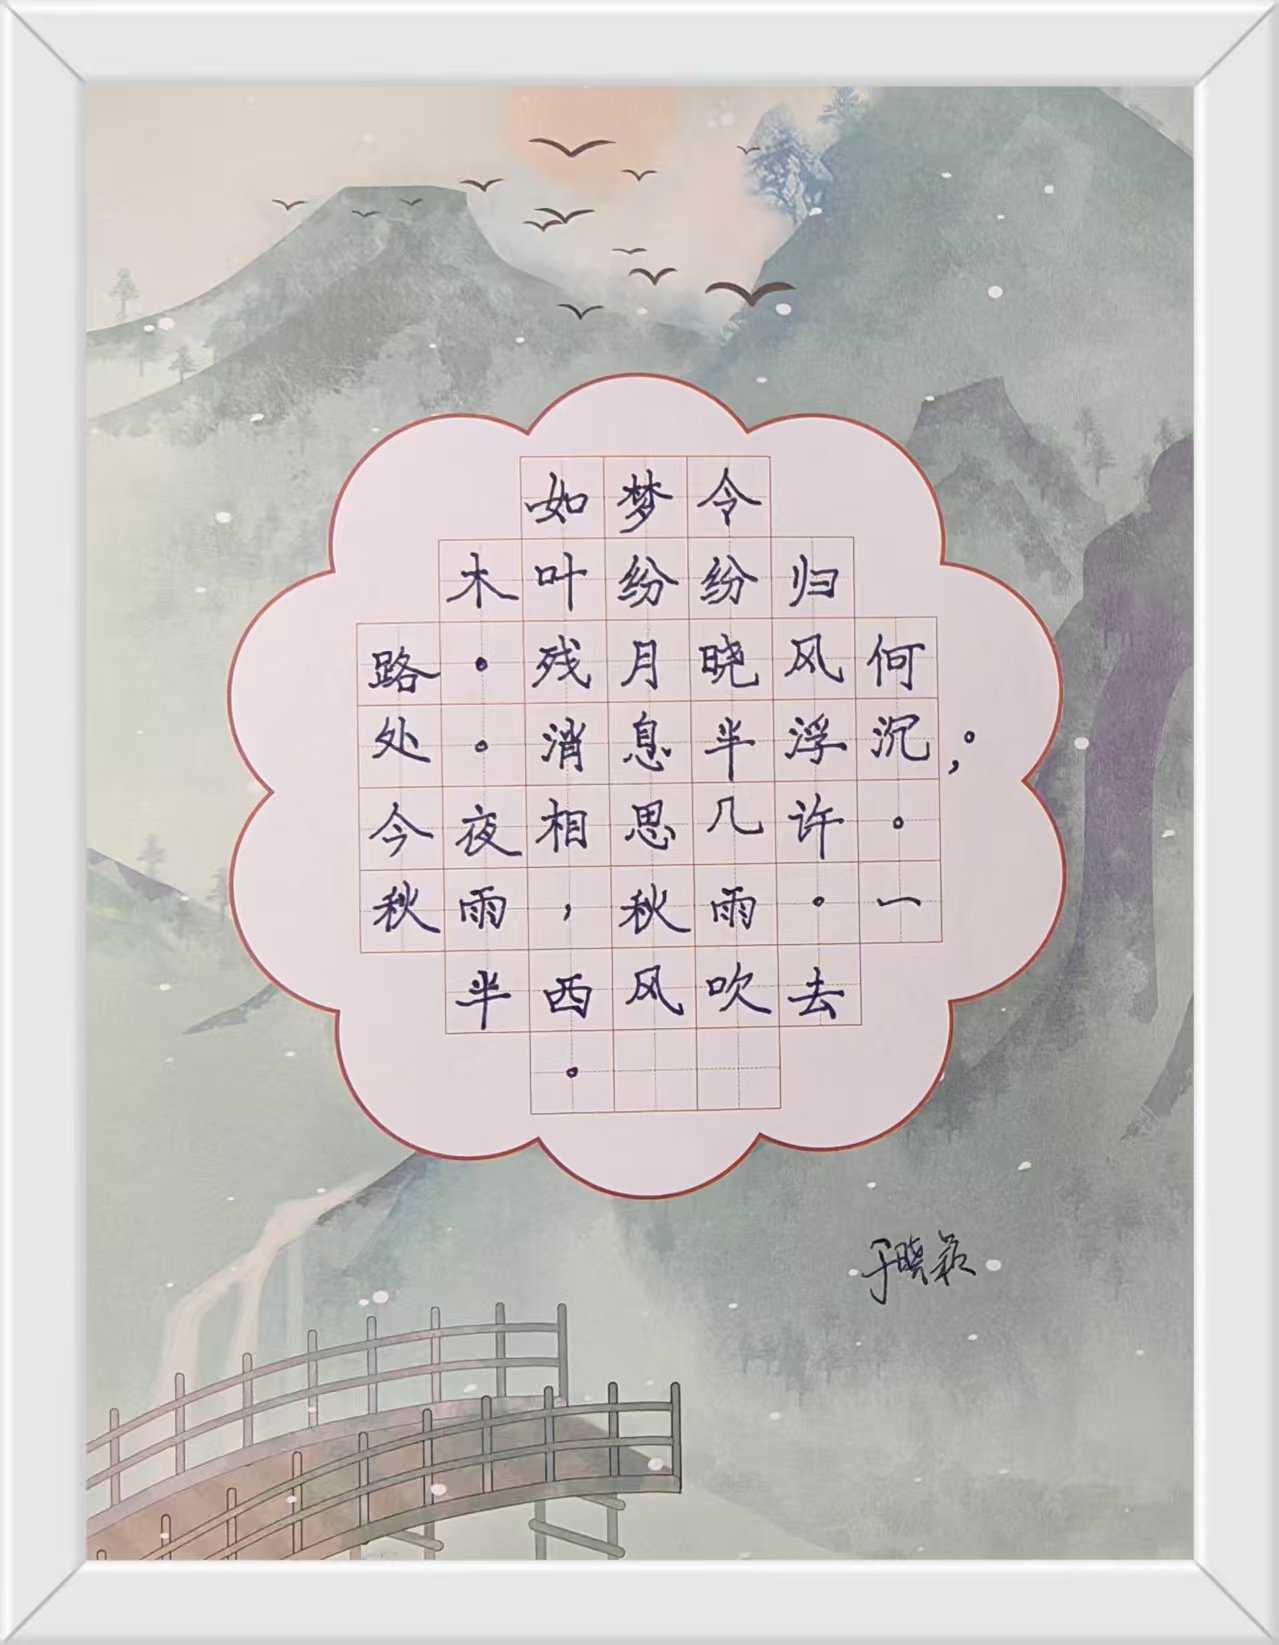 如梦令
木叶纷纷归
路。残月晓风何
处。消息半浮沉，。
今夜相思几许。
秋雨，秋雨。一
半西风吹去
。
于晓颖